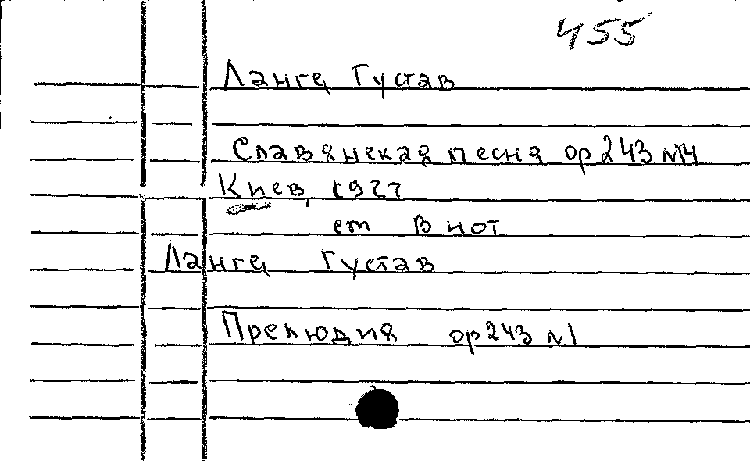 455
Ланге Густав
Славянская песня ор 243 №4
Киев, 1927
ст в нот
Ланге Густав
Прелюдия ор 243 №1